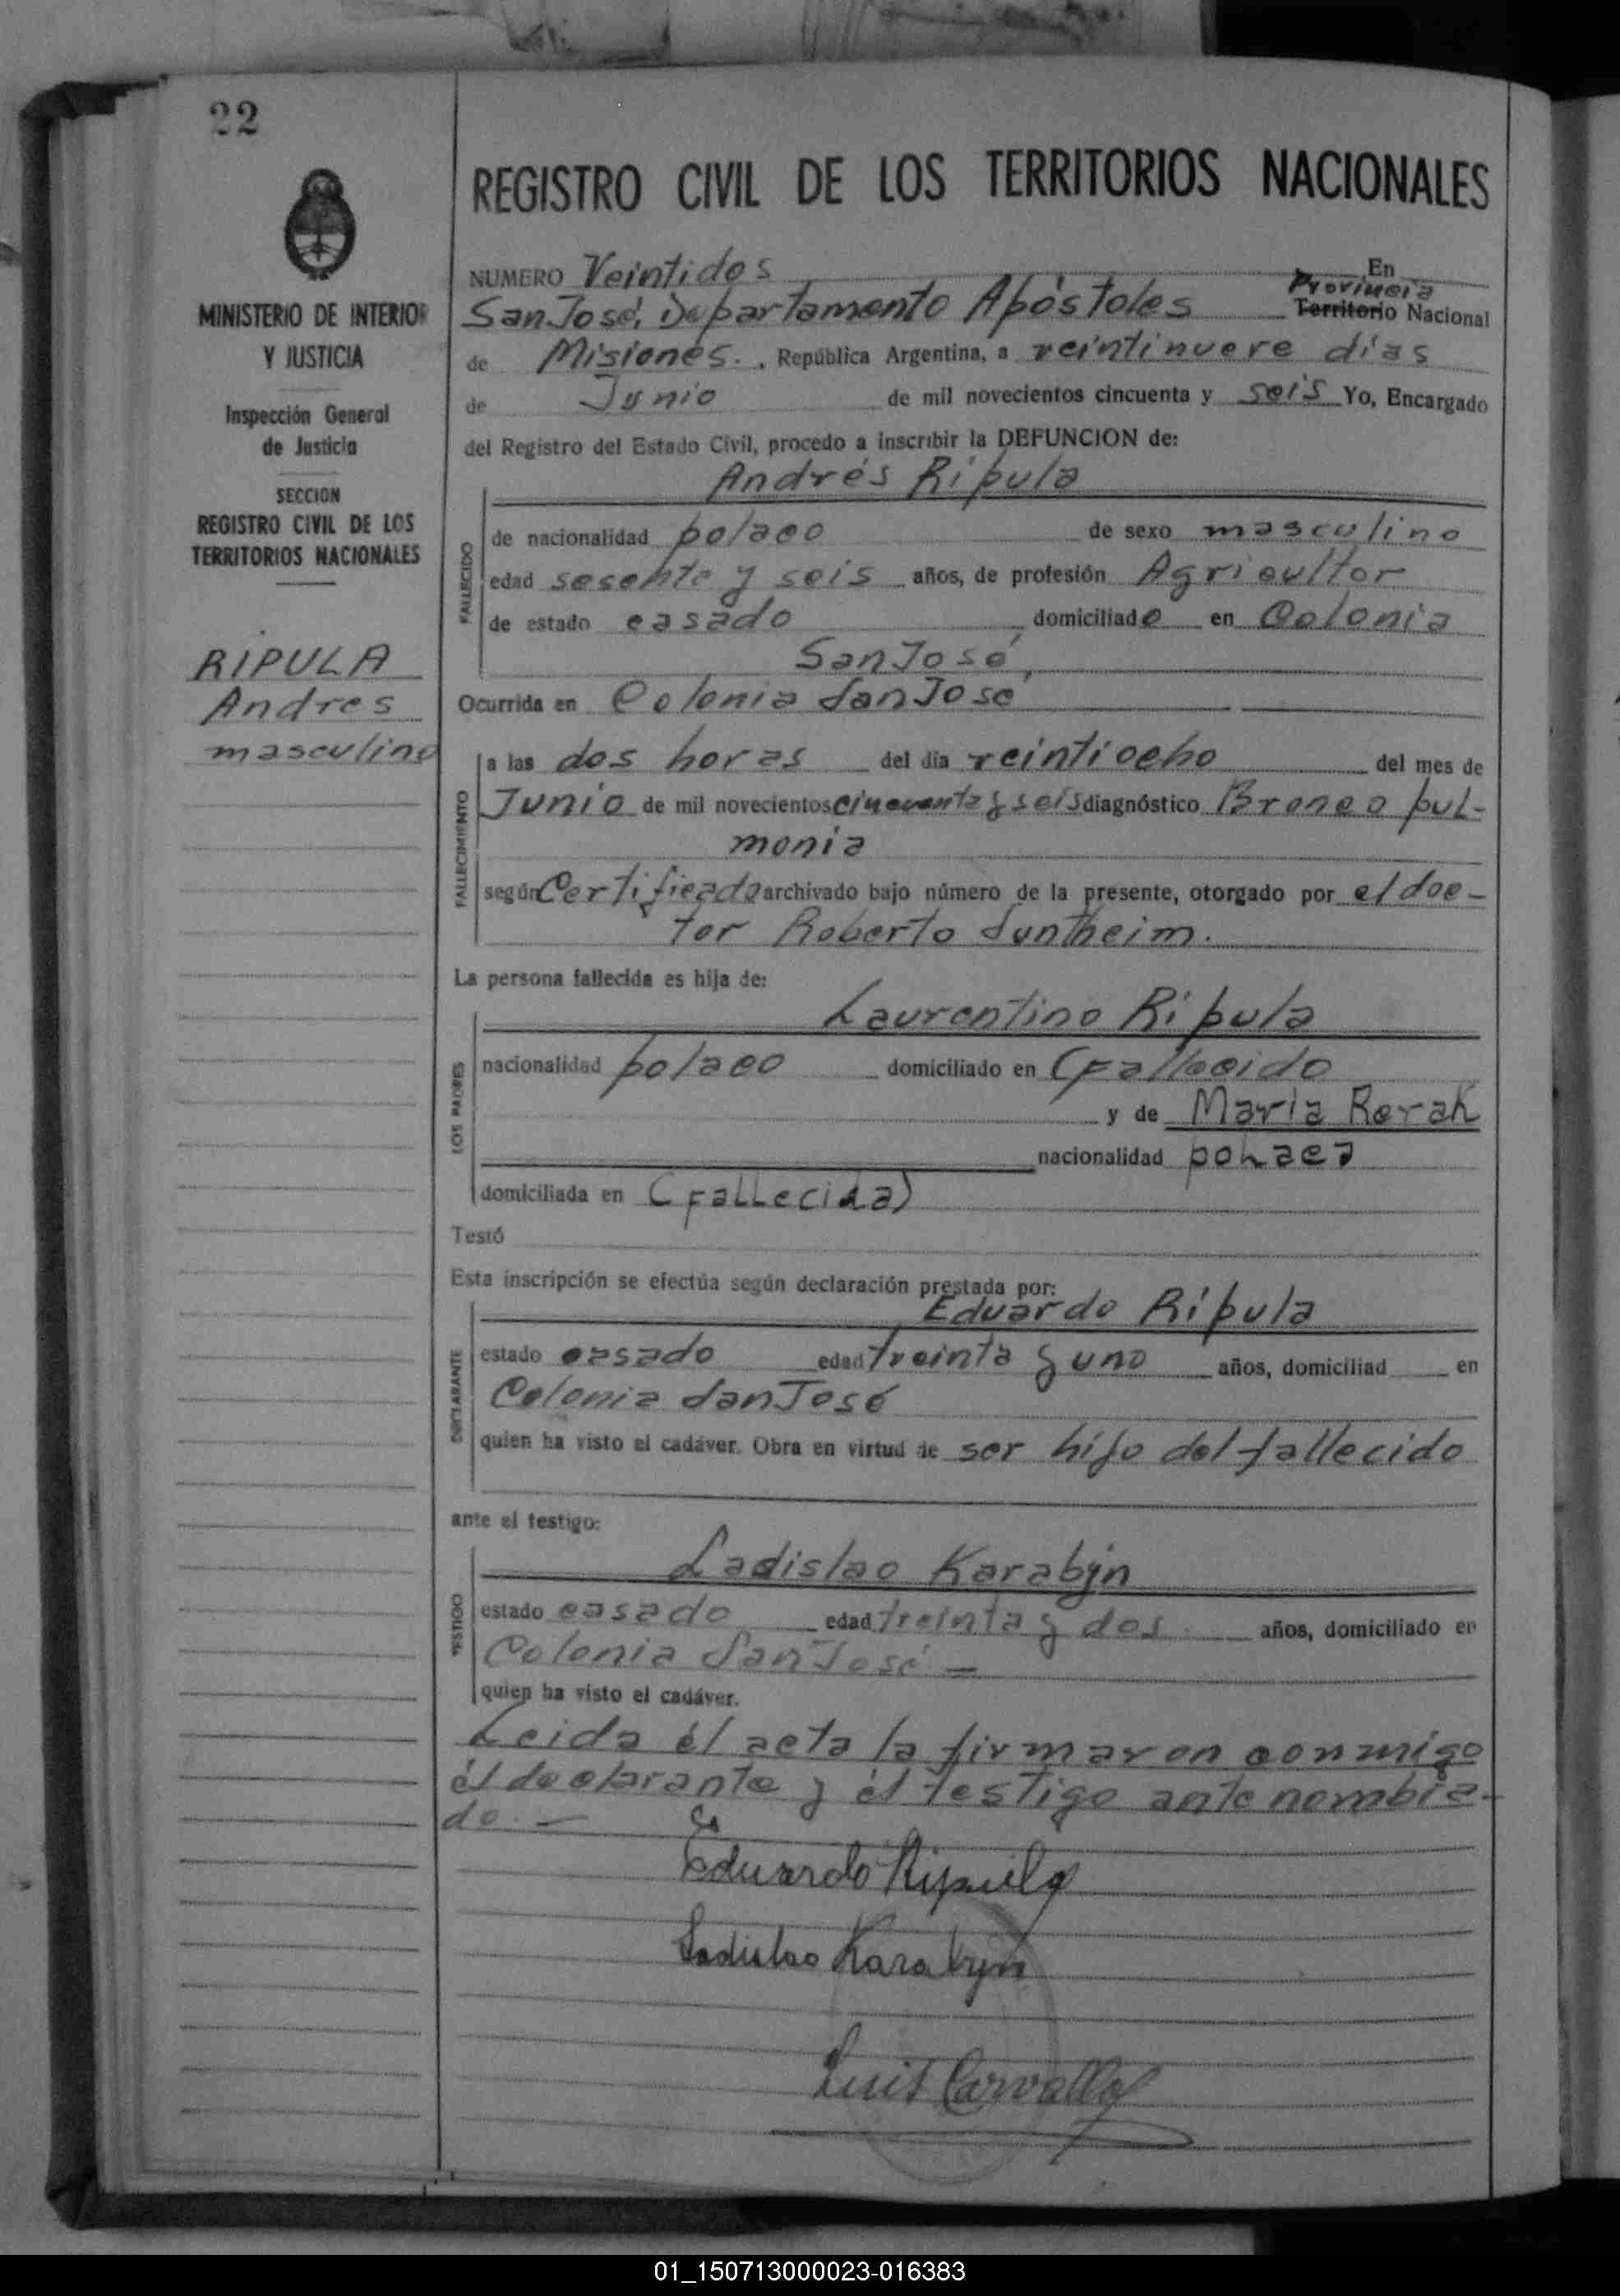 22
MINISTERIO DE INTERIOR
Y JUSTICIA
Inspección General
de Justicia
SECCION
REGISTRO CIVIL DE LOS
TERRITORIOS NACIONALES
RIPULA
Andres
masculino
REGISTRO CIVIL DE LOS TERRITORIOS NACIONALES
NUMERO Veintidos En
Provincia
San José, Departamento Apóstoles Territorio Nacional
de Misiones. , República Argentina, a veintinueve días
de Junio de mil novecientos cincuenta y seis Yo, Encargado
del Registro del Estado Civil, procedo a inscribir la DEFUNCION de:
Andrés Ripula
FALLECIDO
de nacionalidad polaco de sexo masculino
edad sesenta y seis años, de profesión Agricultor
de estado casado domiciliado en Colonia
San José,
Ocurrida en Colonia San José
FALLECIMIENTO
a las dos horas del día veintiocho del mes de
Junio de mil novecientos cincuenta y seis diagnóstico Bronco pul-
monia
según Certificado archivado bajo número de la presente, otorgado por el doc-
tor Roberto Suntheim.
La persona fallecida es hija de:
Laurentino Ripula
LOS PADRES
nacionalidad polaco domiciliado en (Fallecido
y de Maria Rerak
nacionalidad polaca
domiciliada en (fallecida)
Testó
Esta inscripción se efectúa según declaración prestada por:
Eduardo Ripula
DECLARANTE
estado casado edad treinta y uno años, domiciliad en
Colonia San José
quien ha visto el cadáver. Obra en virtud de ser hijo del fallecido
ante el testigo:
Ladislao Karabyn
TESTIGO
estado casado edad treinta y dos años, domiciliado en
Colonia San José =
quien ha visto el cadáver.
Leida él acta la firmaron conmigo
él declarante y él testigo ante nombra-
do. —
Eduardo Ripula
Ladislao Karabyn
Luis Carvallo
01_150713000023-016383